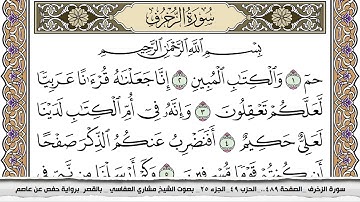 سُورَةُ الزُّخْرُفِ
بِسْمِ اللَّهِ الرَّحْمَٰنِ الرَّحِيمِ
حمٓ ١ وَٱلْكِتَٰبِ ٱلْمُبِينِ ٢ إِنَّا جَعَلْنَٰهُ قُرْءَٰنًا عَرَبِيًّا
لَّعَلَّكُمْ تَعْقِلُونَ ٣ وَإِنَّهُۥ فِىٓ أُمِّ ٱلْكِتَٰبِ لَدَيْنَا
لَعَلِىٌّ حَكِيمٌ ٤ أَفَنَضْرِبُ عَنكُمُ ٱلذِّكْرَ صَفْحًا
أَن كُنتُمْ قَوْمًا مُّسْرِفِينَ ٥ وَكَمْ أَرْسَلْنَا مِن نَّبِىٍّ فِى
سورة الزخرف .. الصفحة ٤٨٩.. الحزب ٤٩ .. الجزء ٢٥ .. بصوت الشيخ مشاري العفاسي .. بالقصر برواية حفص عن عاصم